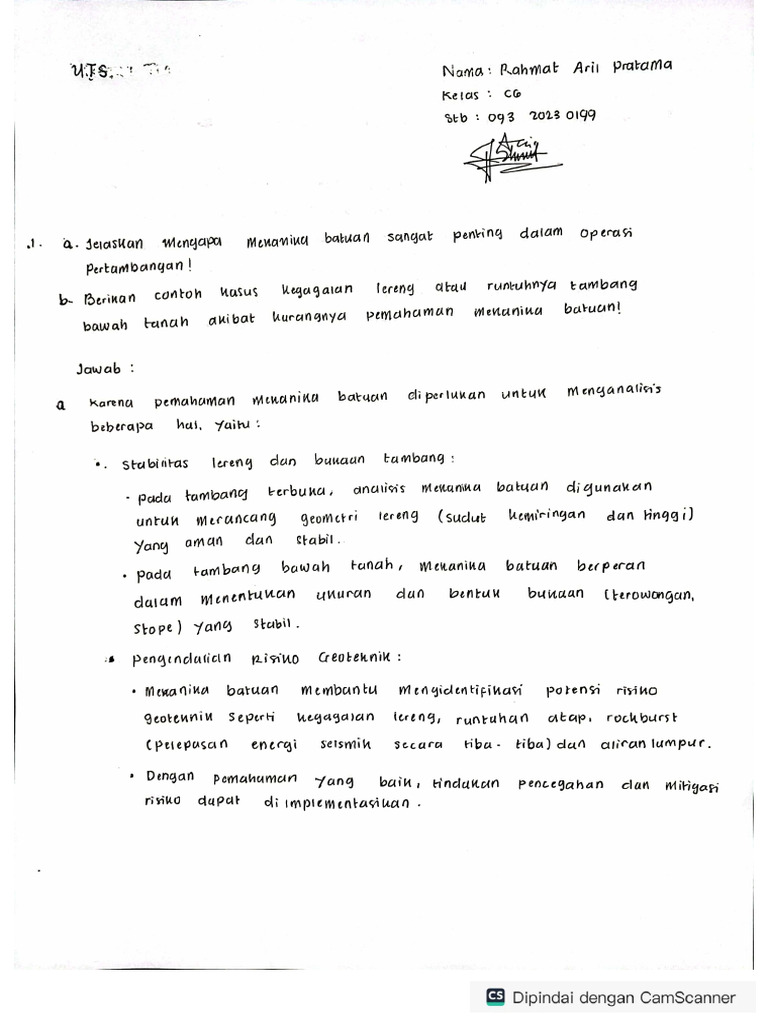 UTS.
Nama : Rahmat Aril Pratama
Kelas : C6
Stb : 093 2023 0199
1. a. Jelaskan Mengapa Mekanika batuan sangat penting dalam operasi
pertambangan!
b. Berikan contoh kasus kegagalan lereng atau runtuhnya tambang
bawah tanah akibat kurangnya pemahaman mekanika batuan!
Jawab :
a Karena pemahaman mekanika batuan diperlukan untuk menganalisis
beberapa hal, yaitu :
•. Stabilitas lereng dan bukaan tambang :
• pada tambang terbuka, analisis mekanika batuan digunakan
untuk merancang geometri lereng (sudut kemiringan dan tinggi)
yang aman dan stabil.
• pada tambang bawah tanah, mekanika batuan berperan
dalam menentukan ukuran dan bentuk bukaan (terowongan,
stope) yang stabil.
• Pengendalian Risiko Geoteknik :
• Mekanika batuan membantu mengidentifikasi potensi risiko
geoteknik seperti kegagalan lereng, runtuhan atap, rockburst
(pelepasan energi seismik secara tiba-tiba) dan aliran lumpur.
• Dengan pemahaman yang baik, tindakan pencegahan dan mitigasi
risiko dapat diimplementasikan.
CS Dipindai dengan CamScanner